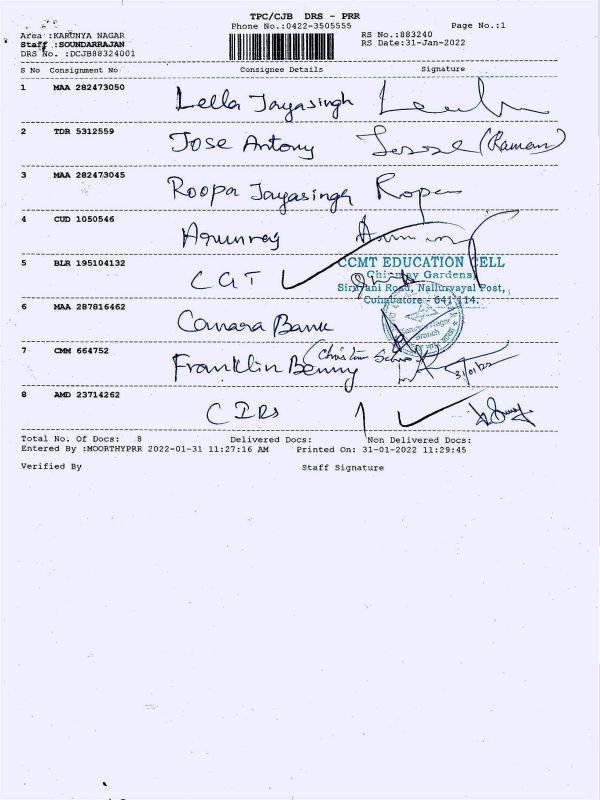 TPC/CJB DRS - PRR
Phone No.:0422-3505555 Page No.:1
Area :KARUNYA NAGAR RS No.:883240
Staff :SOUNDARRAJAN RS Date:31-Jan-2022
DRS No. :DCJB88324001
S No Consignment No Consignee Details Signature
1 MAA 282473050 Lella Jayasingh
2 TDR 5312559 Jose Antony (Raman)
3 MAA 282473045 Roopa Jayasingh Rope
4 CUD 1050546 Arunraj
CCMT EDUCATION CELL
5 BLR 195104132 CGT
Chinmay Gardens
Siruvani Road, Nallurvayal Post,
Coimbatore - 641 114.
6 MAA 287816462 Canara Bank
Karunya Nagar
Branch
7 CMM 664752 Franklin Benny (Christin
31/01/22
8 AMD 23714262 CIRS
Total No. Of Docs: 8 Delivered Docs: 1 Non Delivered Docs:
Entered By :MOORTHYPRR 2022-01-31 11:27:16 AM Printed On: 31-01-2022 11:29:45
Verified By Staff Signature